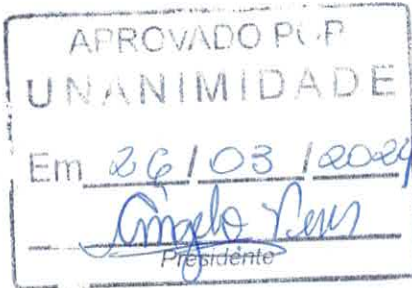 APROVADO POR
UNANIMIDADE
Em 26/03/2024
Presidente